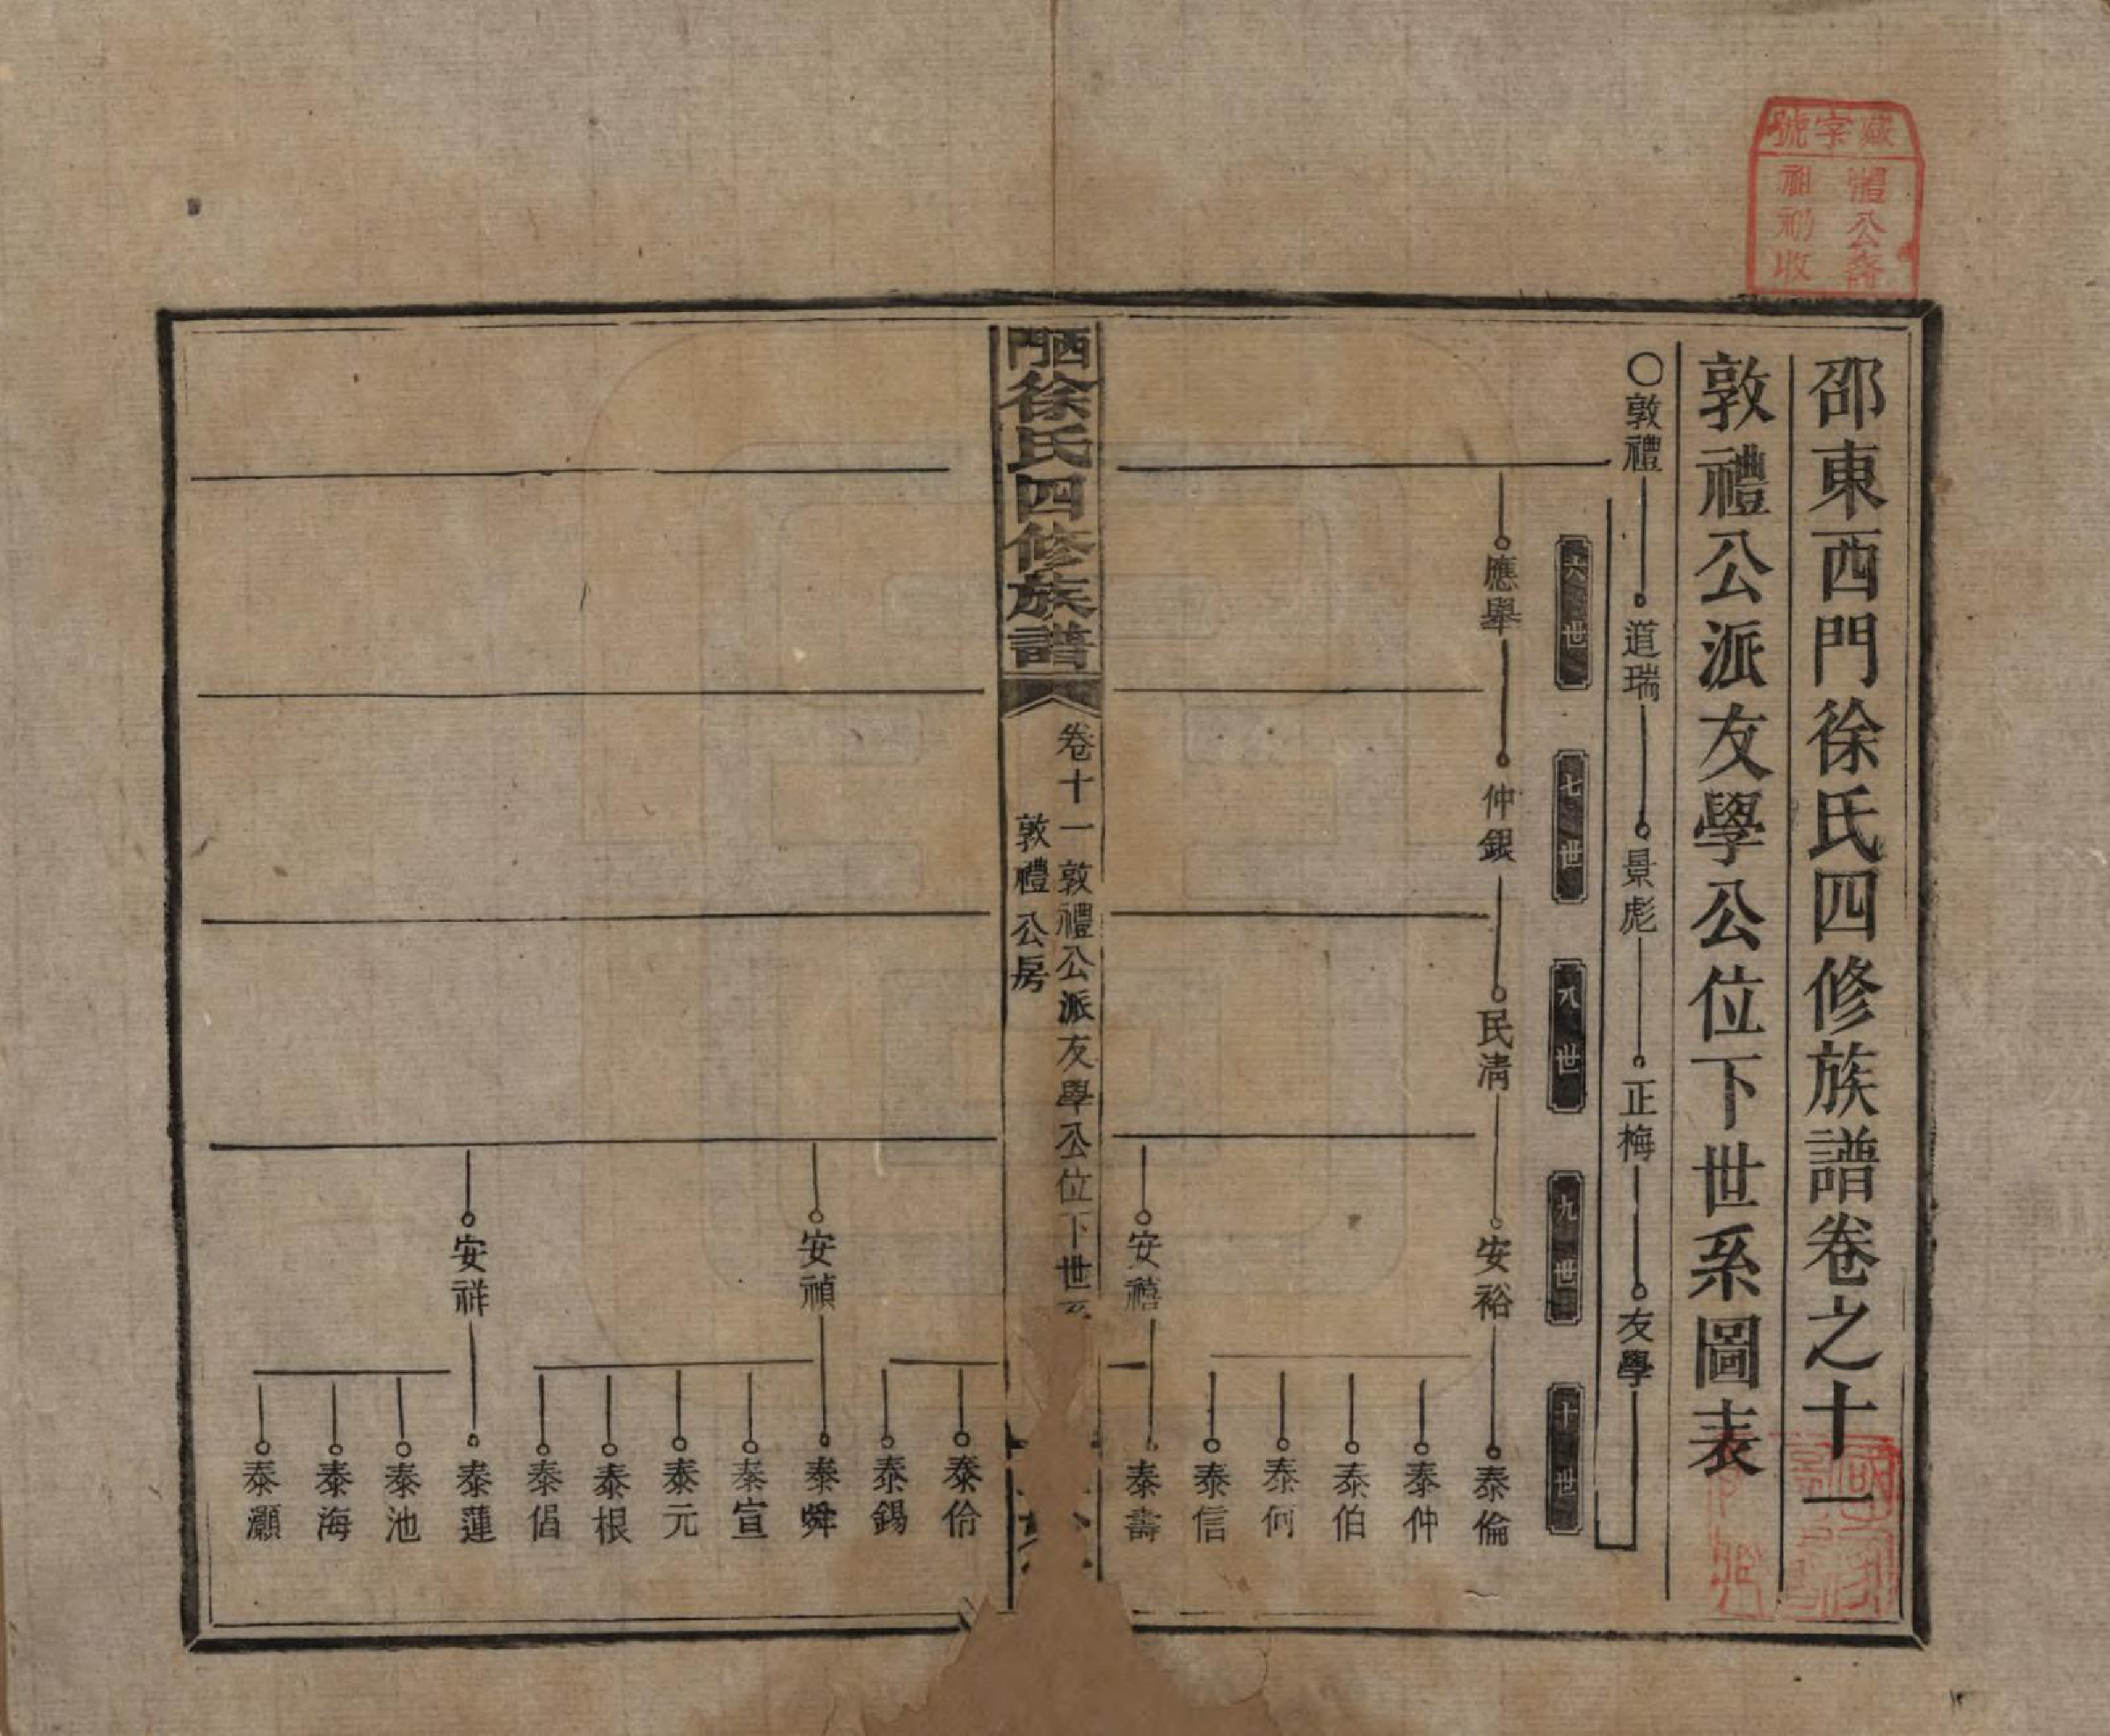 邵東西門徐氏四修族譜卷之十一
敦禮公派友學公位下世系圖表
○敦禮
道瑞
景彪
正梅
友學
六世
七世
八世
九世
十世
應舉
仲銀
民清
安裕
泰倫
泰仲
泰伯
泰何
泰信
安禧
泰壽
西門徐氏四修族譜
卷十一敦禮公派友學公位下世系
敦禮公房
泰伶
泰錫
安禎
泰舜
泰宣
泰元
泰根
泰侶
安祥
泰蓮
泰池
泰海
泰灝
藏字號
體公
收